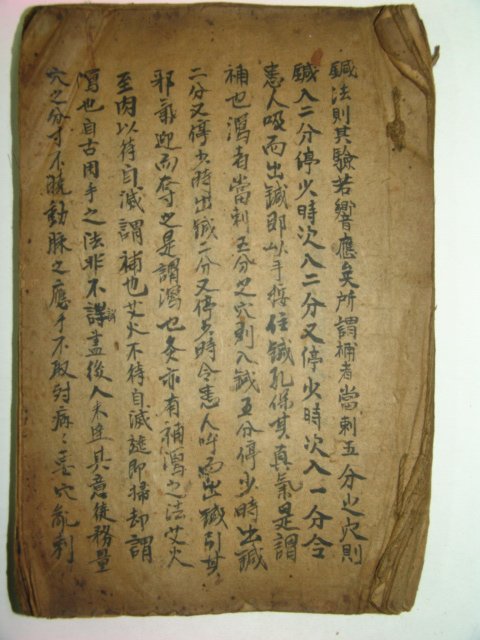 鍼法則其驗若響應矣所謂補者當刺五分之穴則
鍼入二分停少時次入二分又停少時次入一分令
患人吸而出鍼即以手按住鍼孔保其真氣是謂
補也瀉者當刺五分之穴刺入鍼五分停少時出鍼
二分又停少時出鍼二分又停少時令患人呼而出鍼引其
邪氣迎而奪之是謂瀉也灸亦有補瀉之法艾火
至肉以待自滅謂補也艾火不待自滅遽即掃却謂
瀉也自古用手之法非不詳盡後人未達其意徒務量
穴之分寸不曉動脉之應手不取對病之善穴亂刺